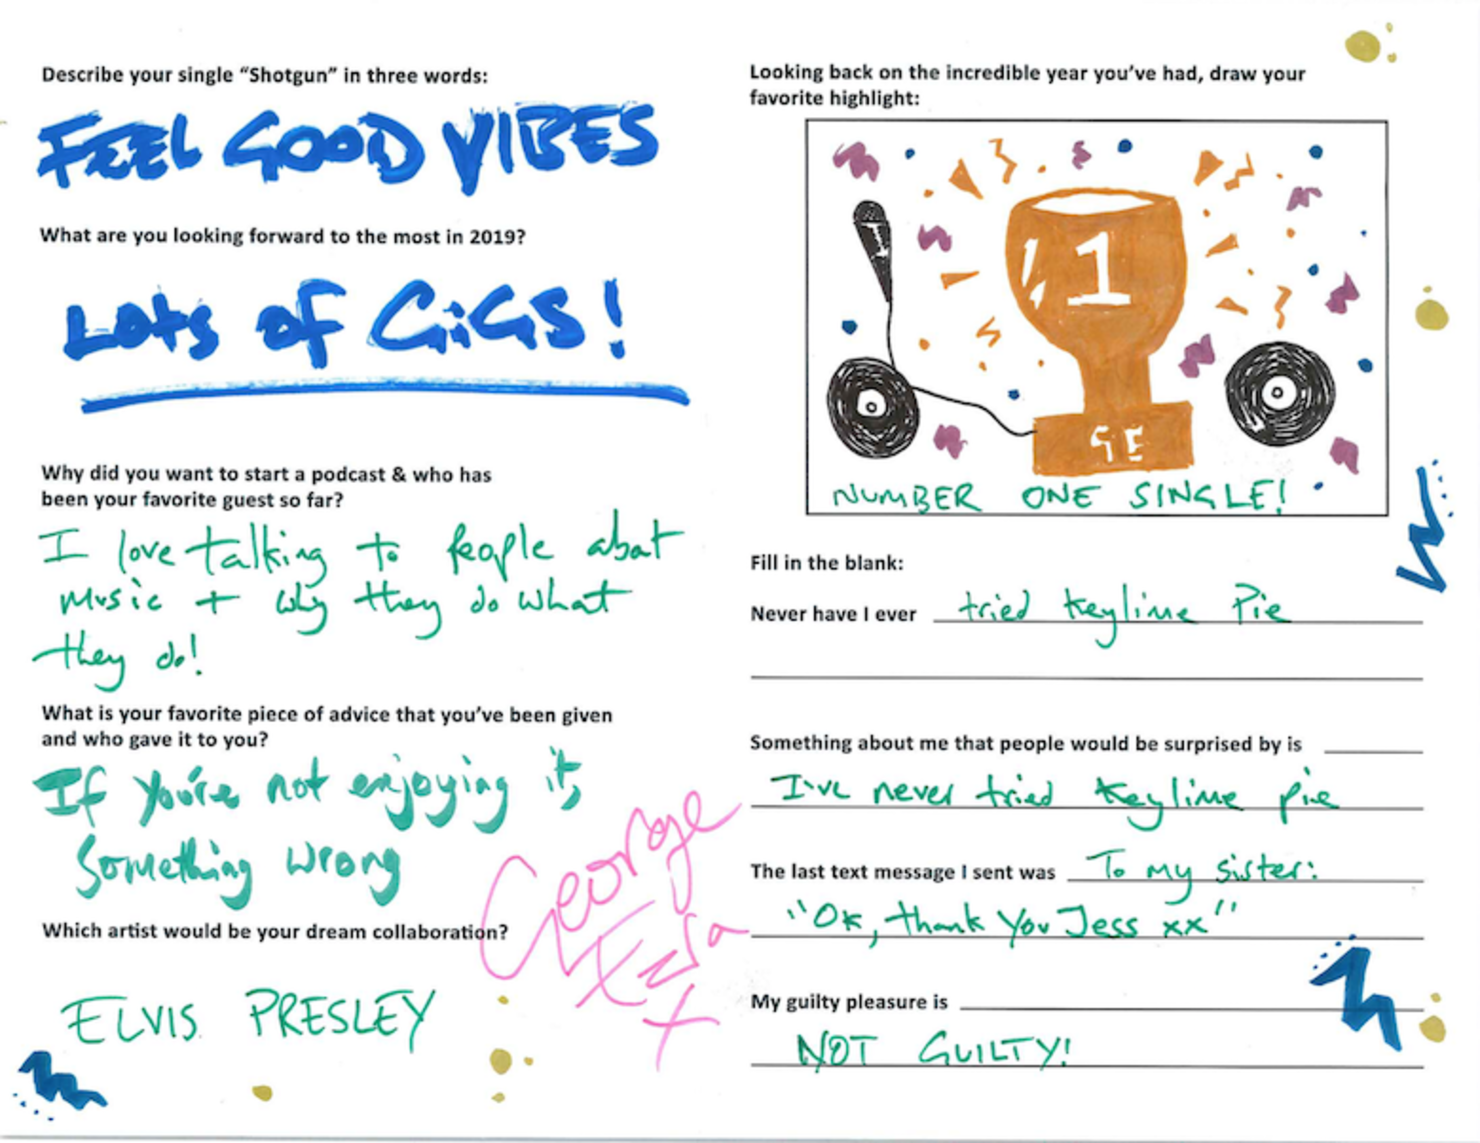 Describe your single “Shotgun” in three words:
FEEL GOOD VIBES
What are you looking forward to the most in 2019?
Lots of GiGS!
Why did you want to start a podcast & who has
been your favorite guest so far?
I love talking to people about
music + why they do what
they do!
What is your favorite piece of advice that you’ve been given
and who gave it to you?
If you're not enjoying it,
something wrong
Which artist would be your dream collaboration?
ELVIS PRESLEY
George
Ezra
x
Looking back on the incredible year you’ve had, draw your
favorite highlight:
1
GE
NUMBER ONE SINGLE!
Fill in the blank:
Never have I ever tried Keylime Pie
Something about me that people would be surprised by is
I've never tried Keylime pie
The last text message I sent was To my sister:
"OK, thank you Jess xx"
My guilty pleasure is
NOT GUILTY!